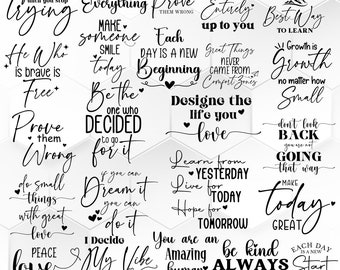 until you stop
trying
Everything
Prove
THEM WRONG
Entirely
up to you
Best Way
TO LEARN
He Who
is brave is
Free
MAKE
SOMEONE
SMILE
today
Each
DAY IS A NEW
Beginning
Great Things
NEVER
CAME FROM
Comfort Zones
Growth is
Growth
no matter how
Small
Prove
them
Wrong
Be the
one who
DECIDED
to go
for it
Designe the
life you
love
don't look
BACK
you are not
GOING
that way
do small
things
with great
love
if you can
Dream it
you can
do it
Learn from
YESTERDAY
Live for
TODAY
Hope for
TOMORROW
MAKE
today
GREAT
PEACE
love
I Decide
My Vibe
You are an
Amazing
human
be kind
ALWAYS
EACH DAY
IS A NEW
Start